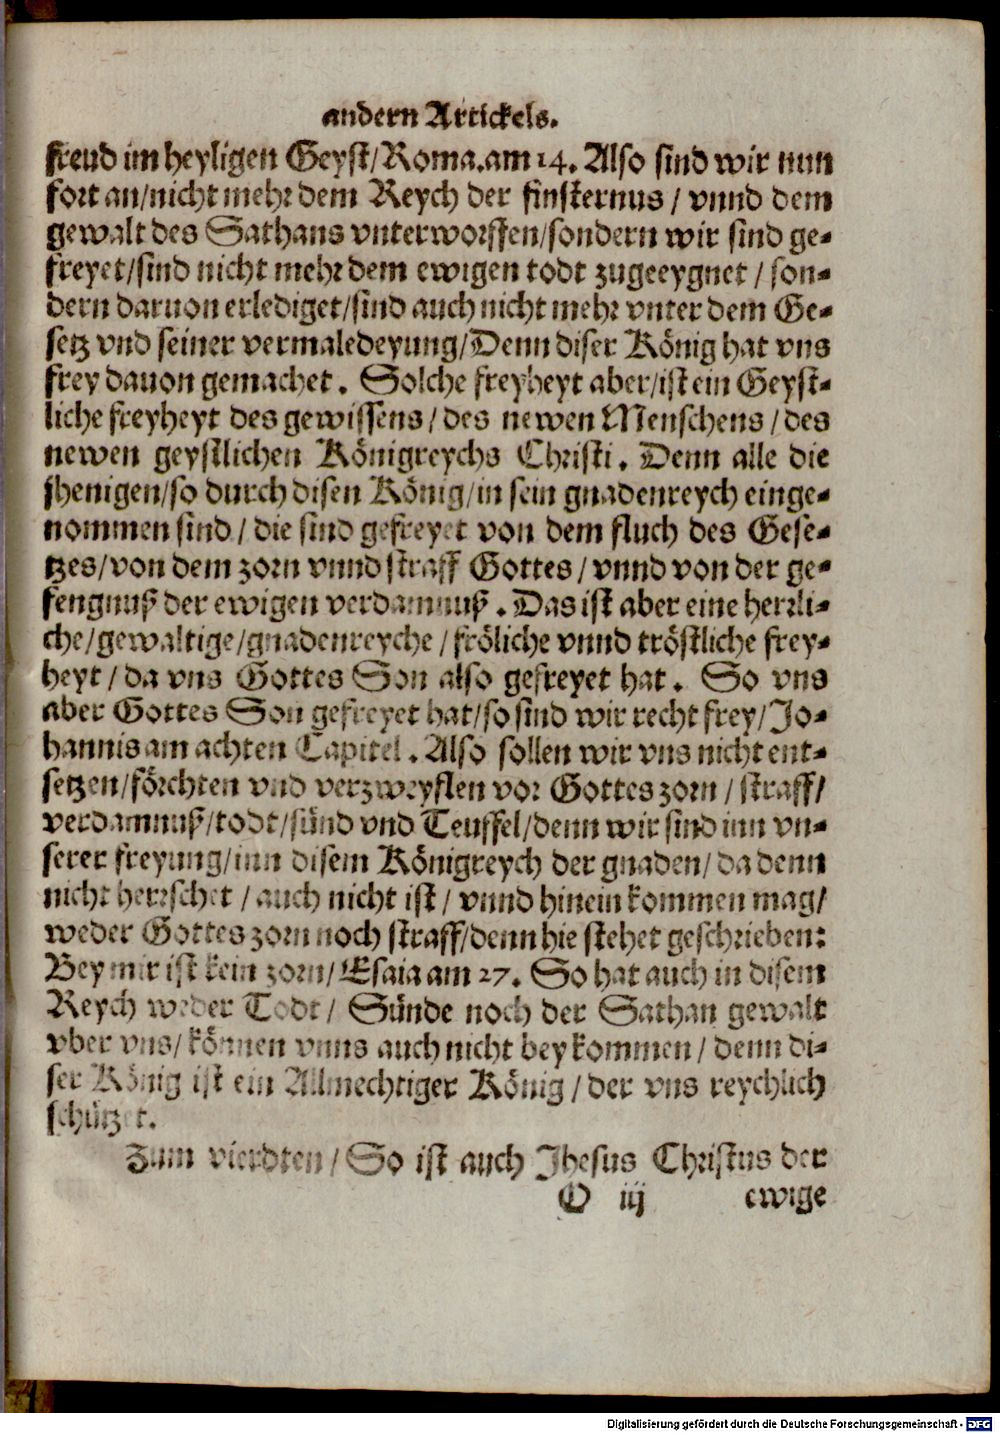 andern Artickels.
freud im heyligen Geyst/Roma.am 14. Also sind wir nun
fort an/nicht mehr dem Reych der finsternus / vnnd dem
gewalt des Sathans vnterworffen/sondern wir sind ge-
freyet/sind nicht mehr dem ewigen todt zugeeygnet / son-
dern daruon erlediget/sind auch nicht mehr vnter dem Ge-
setz vnd seiner vermaledeyung/Denn diser König hat vns
frey dauon gemachet. Solche freyheyt aber/ist ein Geyst-
liche freyheyt des gewissens / des newen Menschens / des
newen geystlichen Königreychs Christi. Denn alle die
jhenigen/so durch disen König/in sein gnadenreych einge-
nommen sind / die sind gefreyet von dem fluch des Gese-
tzes/von dem zorn vnnd straff Gottes / vnnd von der ge-
fengnuß der ewigen verdamnuß. Das ist aber eine herrli-
che/gewaltige/gnadenreyche / fröliche vnnd tröstliche frey-
heyt / da vns Gottes Son also gefreyet hat. So vns
aber Gottes Son gefreyet hat/so sind wir recht frey/Jo-
hannis am achten Capitel. Also sollen wir vns nicht ent-
setzen/förchten vnd verzweyflen vor Gottes zorn / straff/
verdamnuß/todt/sünd vnd Teuffel/denn wir sind inn vn-
serer freyung/inn disem Königreych der gnaden/ da denn
nicht herrschet / auch nicht ist / vnnd hinein kommen mag/
weder Gottes zorn noch straff/denn hie stehet geschrieben:
Bey mir ist kein zorn/ Esaia am 27. So hat auch in disem
Reych weder Todt / Sünde noch der Sathan gewalt
vber vns/ können vnns auch nicht bey kommen / denn di-
ser König ist ein Allmechtiger König / der vns reychlich
schützet.
Zum vierdten / So ist auch Jhesus Christus der
O iij ewige
Digitalisierung gefördert durch die Deutsche Forschungsgemeinschaft - DFG